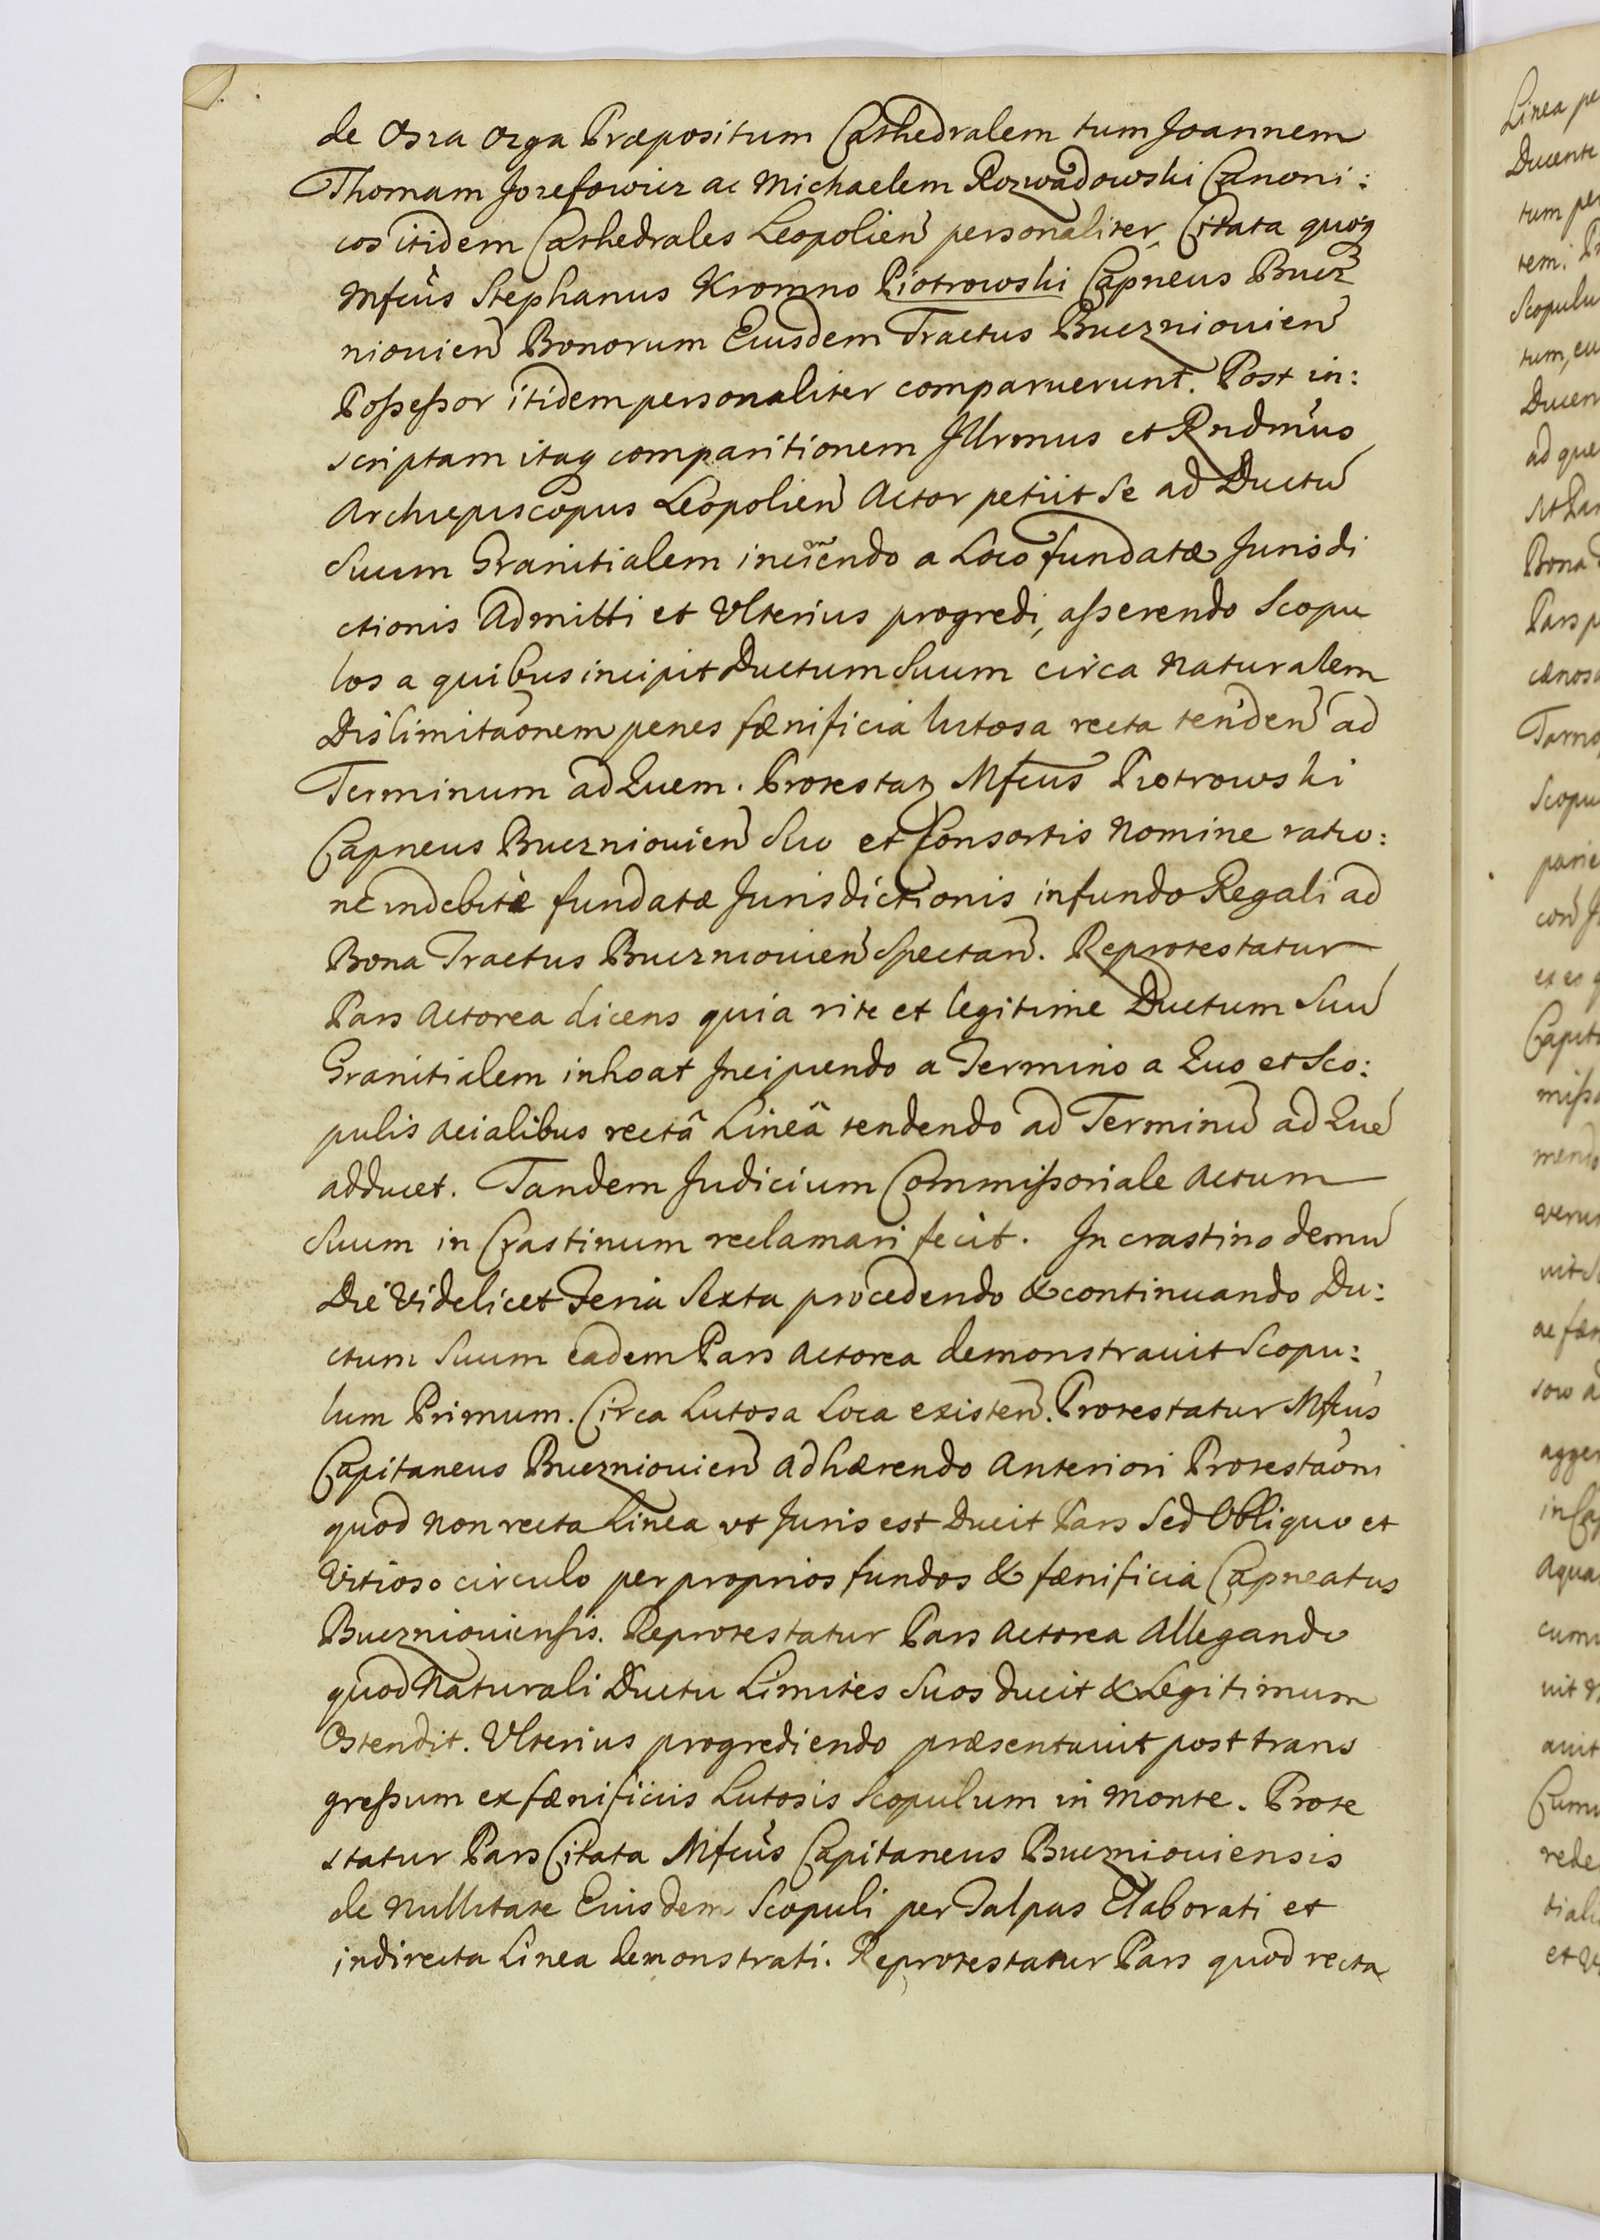 de Osza Orga Præpositum Cathedralem tum Joannem
Thomam Jozefowicz ac Michaelem Rozwadowski Canoni:
cos itidem Cathedrales Leopolien personaliter, Citata quoq
Mfcus Stephanus Kromno Piotrowski Capneus Bucz
niouien Bonorum Eiusdem Tractus Buczniouien
Poßeßor itidem personaliter comparuerunt. Post in:
scriptam itaq comparitionem Jllrmus et Rndmus
Archiepiscopus Leopolien Actor petiit se ad Ductu
Suum Granitialem inciendo a Loco fundatæ Jurisdi
ctionis Admitti et Vlterius progredi, aßerendo Scopu
los a quibus incipit Ductum Suum circa naturalem
Dislimitaonem penes fænificia lutosa recta tenden ad
Terminum ad Quem. Protestaz Mfcus Piotrowski
Capneus Buczniouien Suo et Consortis Nomine ratio:
ne indebitè fundatæ Jurisdictionis in fundo Regali ad
Bona Tractus Buczniouien Spectan. Reprotestatur
Pars Actorea dicens quia rite et legitime Ductum Suu
Granitialem inhoat Jncipiendo a Termino a Quo et Sco:
pulis acialibus rectâ Lineâ tendendo ad Terminu ad Que
adducet. Tandem Judicium Commißoriale Actum
Suum in Crastinum reclamari fecit. In crastino demu
Die Videlicet Feria Sexta procedendo & continuando Du:
ctum Suum eadem Pars Actorea demonstrauit Scopu:
lum Primum. Circa Lutosa Loca existen. Protestatur Mfcus
Capitaneus Buczniouien adhærendo Anteriori Protestaoni
quod non recta Linea vt Juris est Ducit Pars Sed Obliquo et
Vitioso circulo per proprios fundos & fænificia Capneatus
Buczniouiensis. Reprotestatur Pars Actorea Allegando
quod Naturali Ductu Limites Suos ducit & Legitimum
Ostendit. Vlterius progrediendo præsentauit post trans
greßum ex fænificiis Lutosis Scopulum in Monte. Prote
statur Pars Citata Mfcus Capitaneus Buczniouiensis
de Nullitate Eiusdem Scopuli per Talpas Elaborati et
indirecta Linea demonstrati. Reprotestatur Pars quod recta